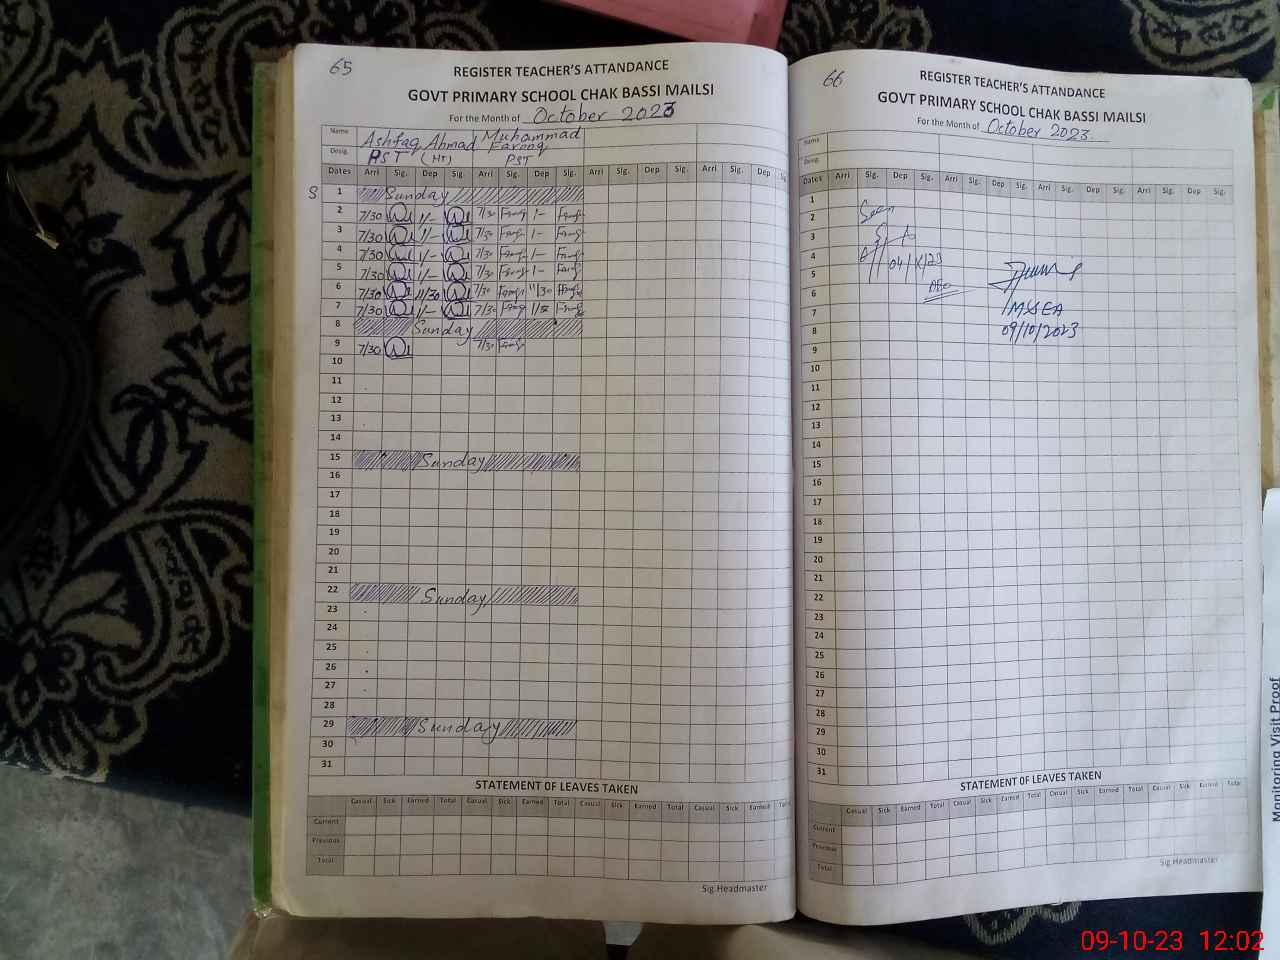 65
REGISTER TEACHER'S ATTANDANCE
GOVT PRIMARY SCHOOL CHAK BASSI MAILSI
For the Month of October 2023
Name Ashfaq Ahmad Muhammad Farooq
Desig. PST (HT) PST
Dates Arri Sig. Dep Sig. Arri Sig. Dep Sig. Arri Sig. Dep Sig. Arri Sig. Dep
S 1 Sunday
2 7/30 1/- 7/30 Farooq 1/- Farooq
3 7/30 1/- 7/30 Farooq 1/- Farooq
4 7/30 1/- 7/30 Farooq 1/- Farooq
5 7/30 1/- 7/30 Farooq 1/- Farooq
6 7/30 11/30 7/30 Farooq 11/30 Farooq
7 7/30 1/- 7/30 Farooq Farooq
8 Sunday
9 7/30 7/30 Farooq
10
11
12
13
14
15 Sunday
16
17
18
19
20
21
22 Sunday
23
24
25
26
27
28
29 Sunday
30
31
STATEMENT OF LEAVES TAKEN
Casual Sick Earned Total Casual Sick Earned Total Casual Sick Earned Total Casual Sick Earned Total
Current
Previous
Total
Sig.Headmaster
66
REGISTER TEACHER'S ATTANDANCE
GOVT PRIMARY SCHOOL CHAK BASSI MAILSI
For the Month of October 2023.
Name
Desig.
Dates Arri Sig. Dep Sig. Arri Sig. Dep Sig. Arri Sig. Dep Sig.
1
2 Seen
3
4
5
6
7
8 09/10/2023
9
10
11
12
13
14
15
16
17
18
19
20
21
22
23
24
25
26
27
28
29
30
31
STATEMENT OF LEAVES TAKEN
Casual Sick Earned Total Casual Sick Earned Total Casual Sick Earned Total
Current
Previous
Total
Sig.Headmaster
Monitoring Visit Proof
09-10-23 12:02